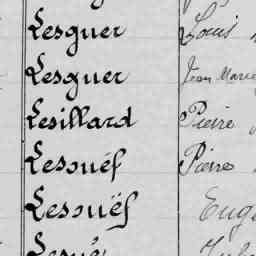 Lesguer Louis
Lesguer Jean Marie
Lesillard Pierre
Lesouëf Pierre
Lesouëf Eugè
Lesué